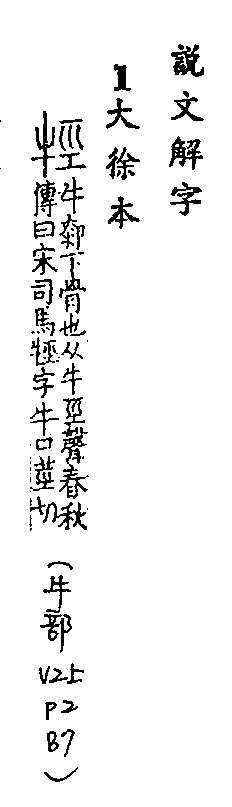 說文解字
1大徐本
牼牛厀下骨也从牛巠聲春秋
傳曰宋司馬牼字牛口莖切
(牛部V2上P2B7)